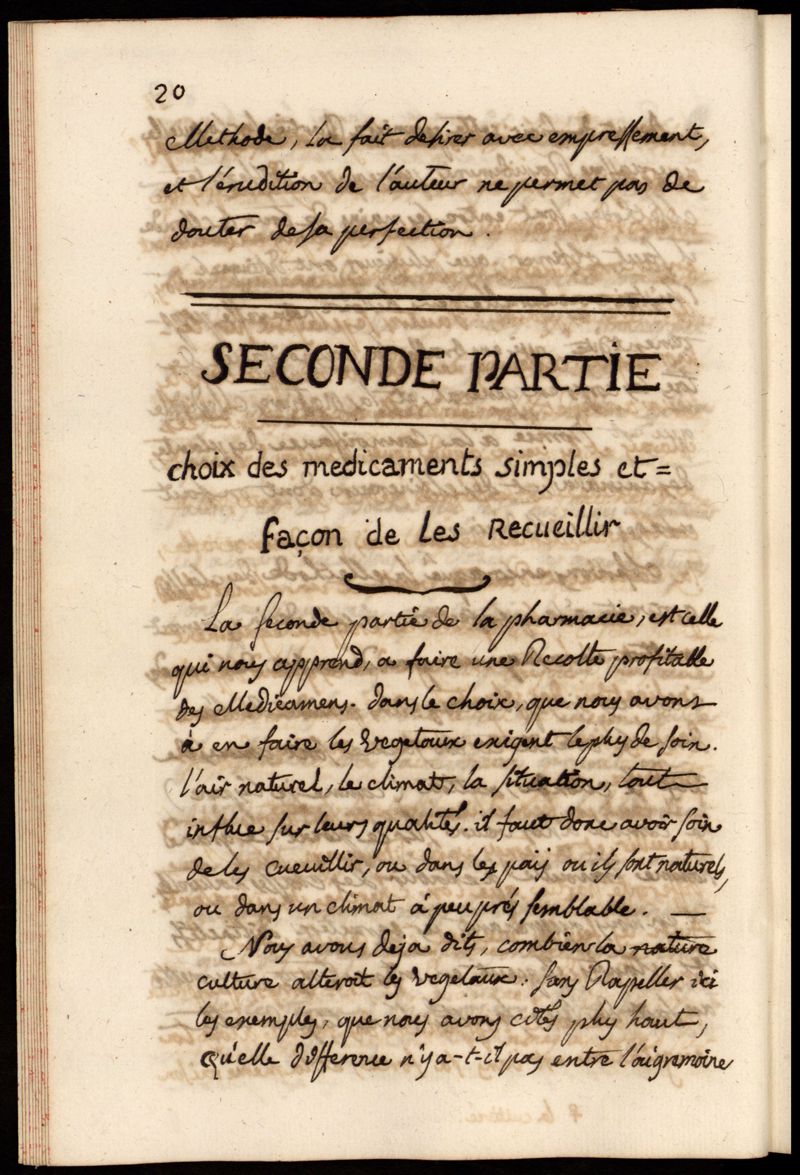 20
Methode, la fait desirer avec empressement,
et l'érudition de l'auteur ne permet pas de
douter de sa perfection.
SECONDE PARTIE
choix des medicaments simples et=
façon de les Recueillir
La seconde partie de la pharmacie, est celle
qui nous apprend, a faire une Recolte profitable
des Medicamens. dans le choix, que nous avons
à en faire les vegetaux exigent le plus de soin.
l'air naturel, le climat, la situation, tout
influe sur leurs qualités. il faut donc avoir soin
de les cueuillir, ou dans les païs ou ils sont naturels,
ou dans un climat à peu prés semblable. —
Nous avons deja dits, combien la nature
culture alteroit les vegetaux. sans Rapeller ici
les exemples, que nous avons cités plus haut,
qu'elle difference n'y a-t-il pas entre l'aigremoine